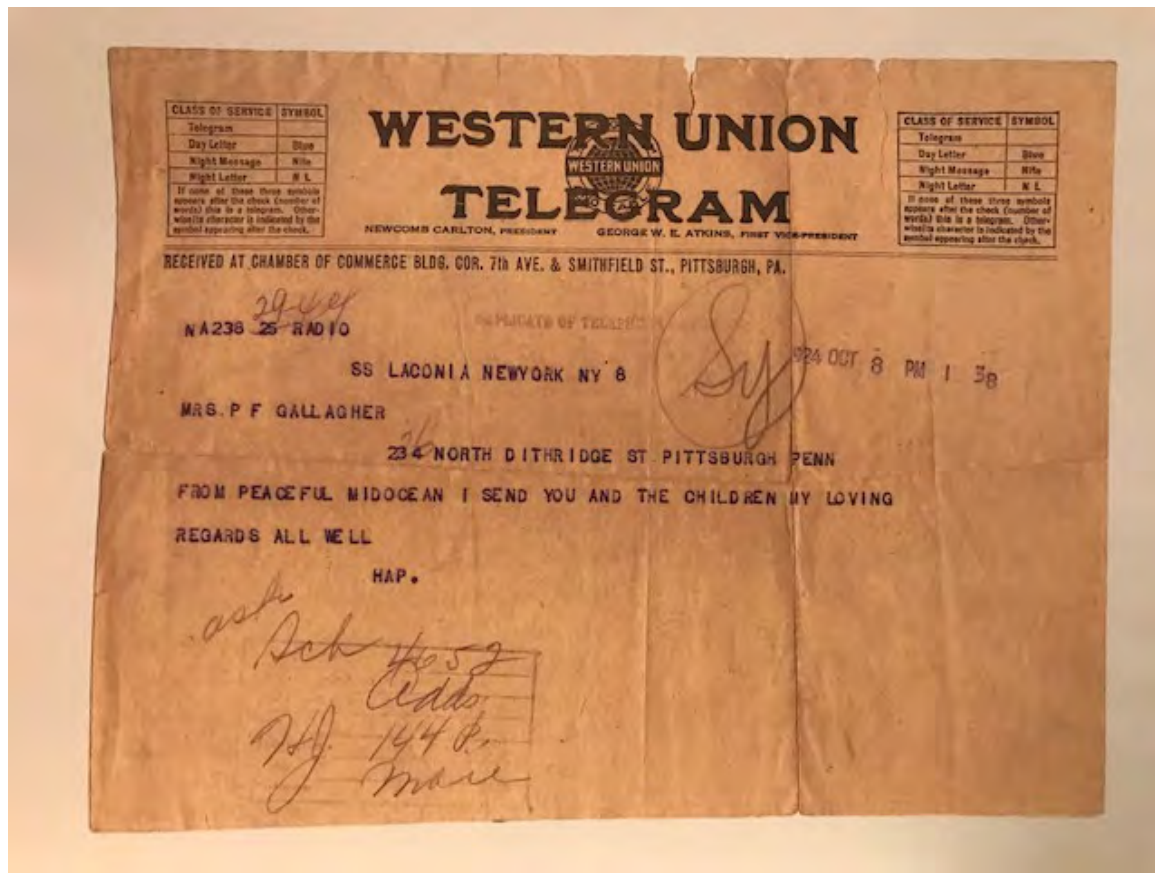 CLASS OF SERVICE SYMBOL
Telegram
Day Letter Blue
Night Message Nite
Night Letter N L
If none of these three symbols
appears after the check (number of
words) this is a telegram. Other-
wise its character is indicated by the
symbol appearing after the check.
WESTERN UNION
WESTERN UNION
TELEGRAM
NEWCOMB CARLTON, PRESIDENT GEORGE W. E. ATKINS, FIRST VICE-PRESIDENT
CLASS OF SERVICE SYMBOL
Telegram
Day Letter Blue
Night Message Nite
Night Letter N L
If none of these three symbols
appears after the check (number of
words) this is a telegram. Other-
wise its character is indicated by the
symbol appearing after the check.
RECEIVED AT CHAMBER OF COMMERCE BLDG. COR. 7th AVE. & SMITHFIELD ST., PITTSBURGH, PA.
29
NA238 25 RADIO
DUPLICATE OF
SS LACONIA NEWYORK NY 8
Sy
1924 OCT 8 PM 1 38
MRS. P F GALLAGHER
234 NORTH DITHRIDGE ST PITTSBURGH PENN
FROM PEACEFUL MIDOCEAN I SEND YOU AND THE CHILDREN MY LOVING
REGARDS ALL WELL
HAP.
ask
Sch 4652
adds
144 P.